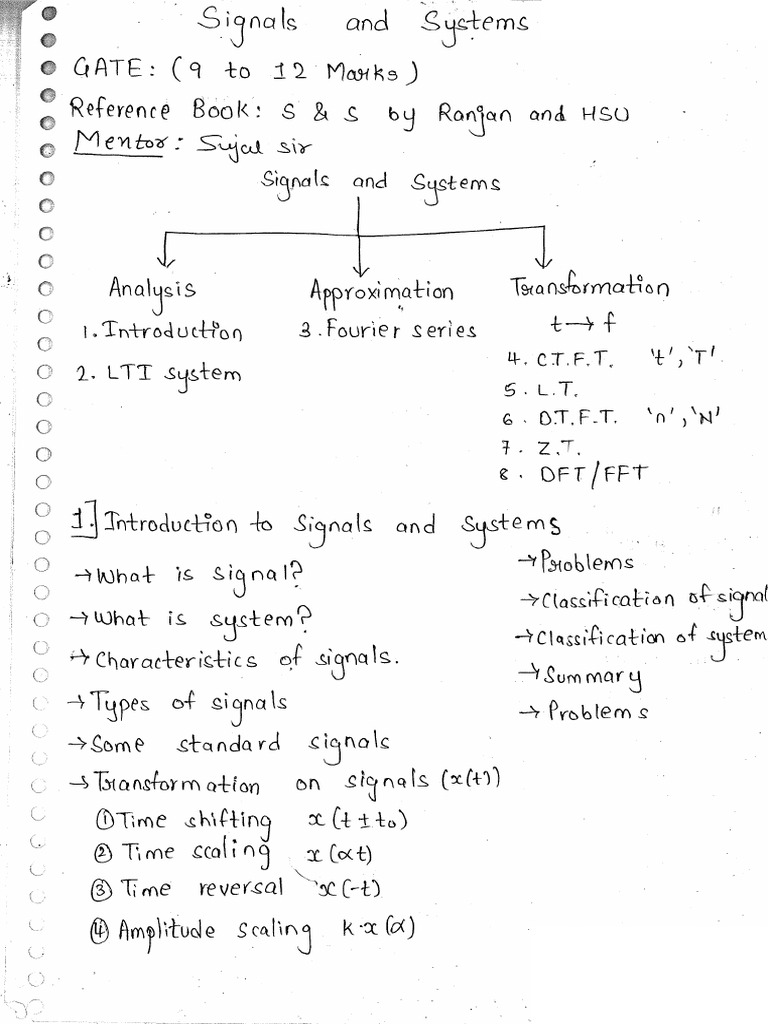 Signals and Systems
GATE: (9 to 12 Marks)
Reference Book: S & S by Ranjan and HSU
Mentor: Sujal sir
Signals and Systems
Analysis
1. Introduction
2. LTI system
Approximation
3. Fourier series
Transformation
t → f
4. C.T.F.T. 't', 'T'
5. L.T.
6. D.T.F.T. 'n', 'N'
7. Z.T.
8. DFT/FFT
1. Introduction to Signals and Systems
→ What is signal?
→ What is system?
→ Characteristics of signals.
→ Types of signals
→ Some standard signals
→ Transformation on signals (x(t))
① Time shifting x(t ± t₀)
② Time scaling x(αt)
③ Time reversal x(-t)
④ Amplitude scaling k·x(α)
→ Problems
→ Classification of signal
→ Classification of system
→ Summary
→ Problems